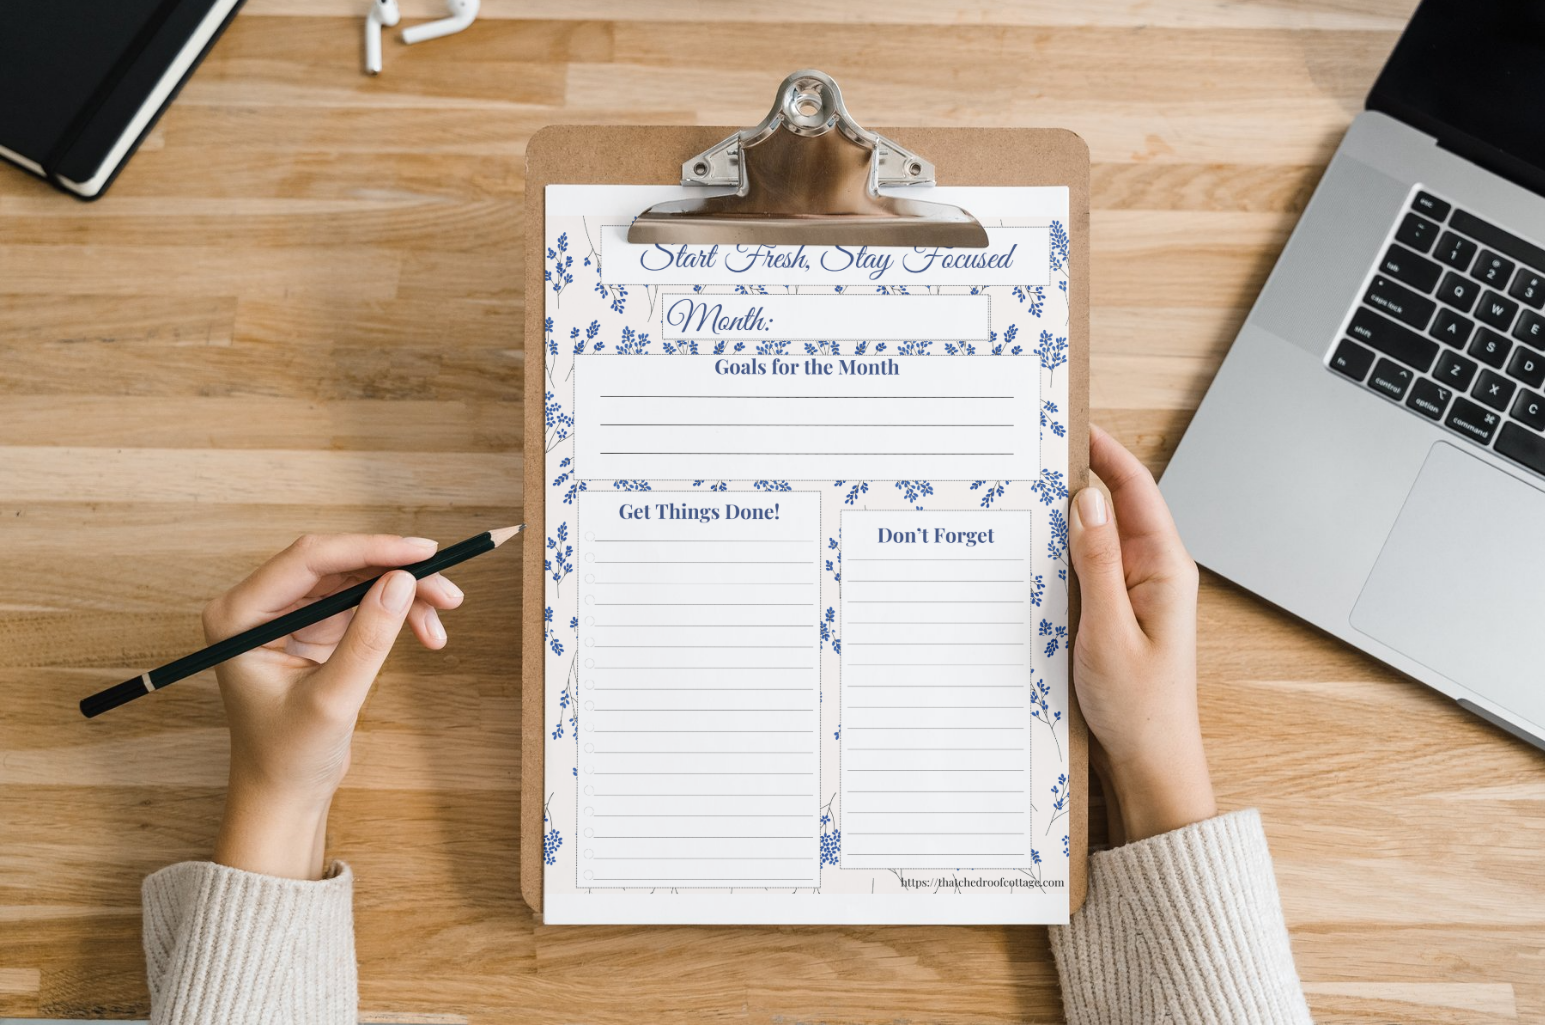 Start Fresh, Stay Focused
Month:
Goals for the Month
Get Things Done!
Don't Forget
https://thatchedroofcottage.com
esc
~ 1 2 3
tab Q W E
caps lock A S D
shift Z X C
fn control option command